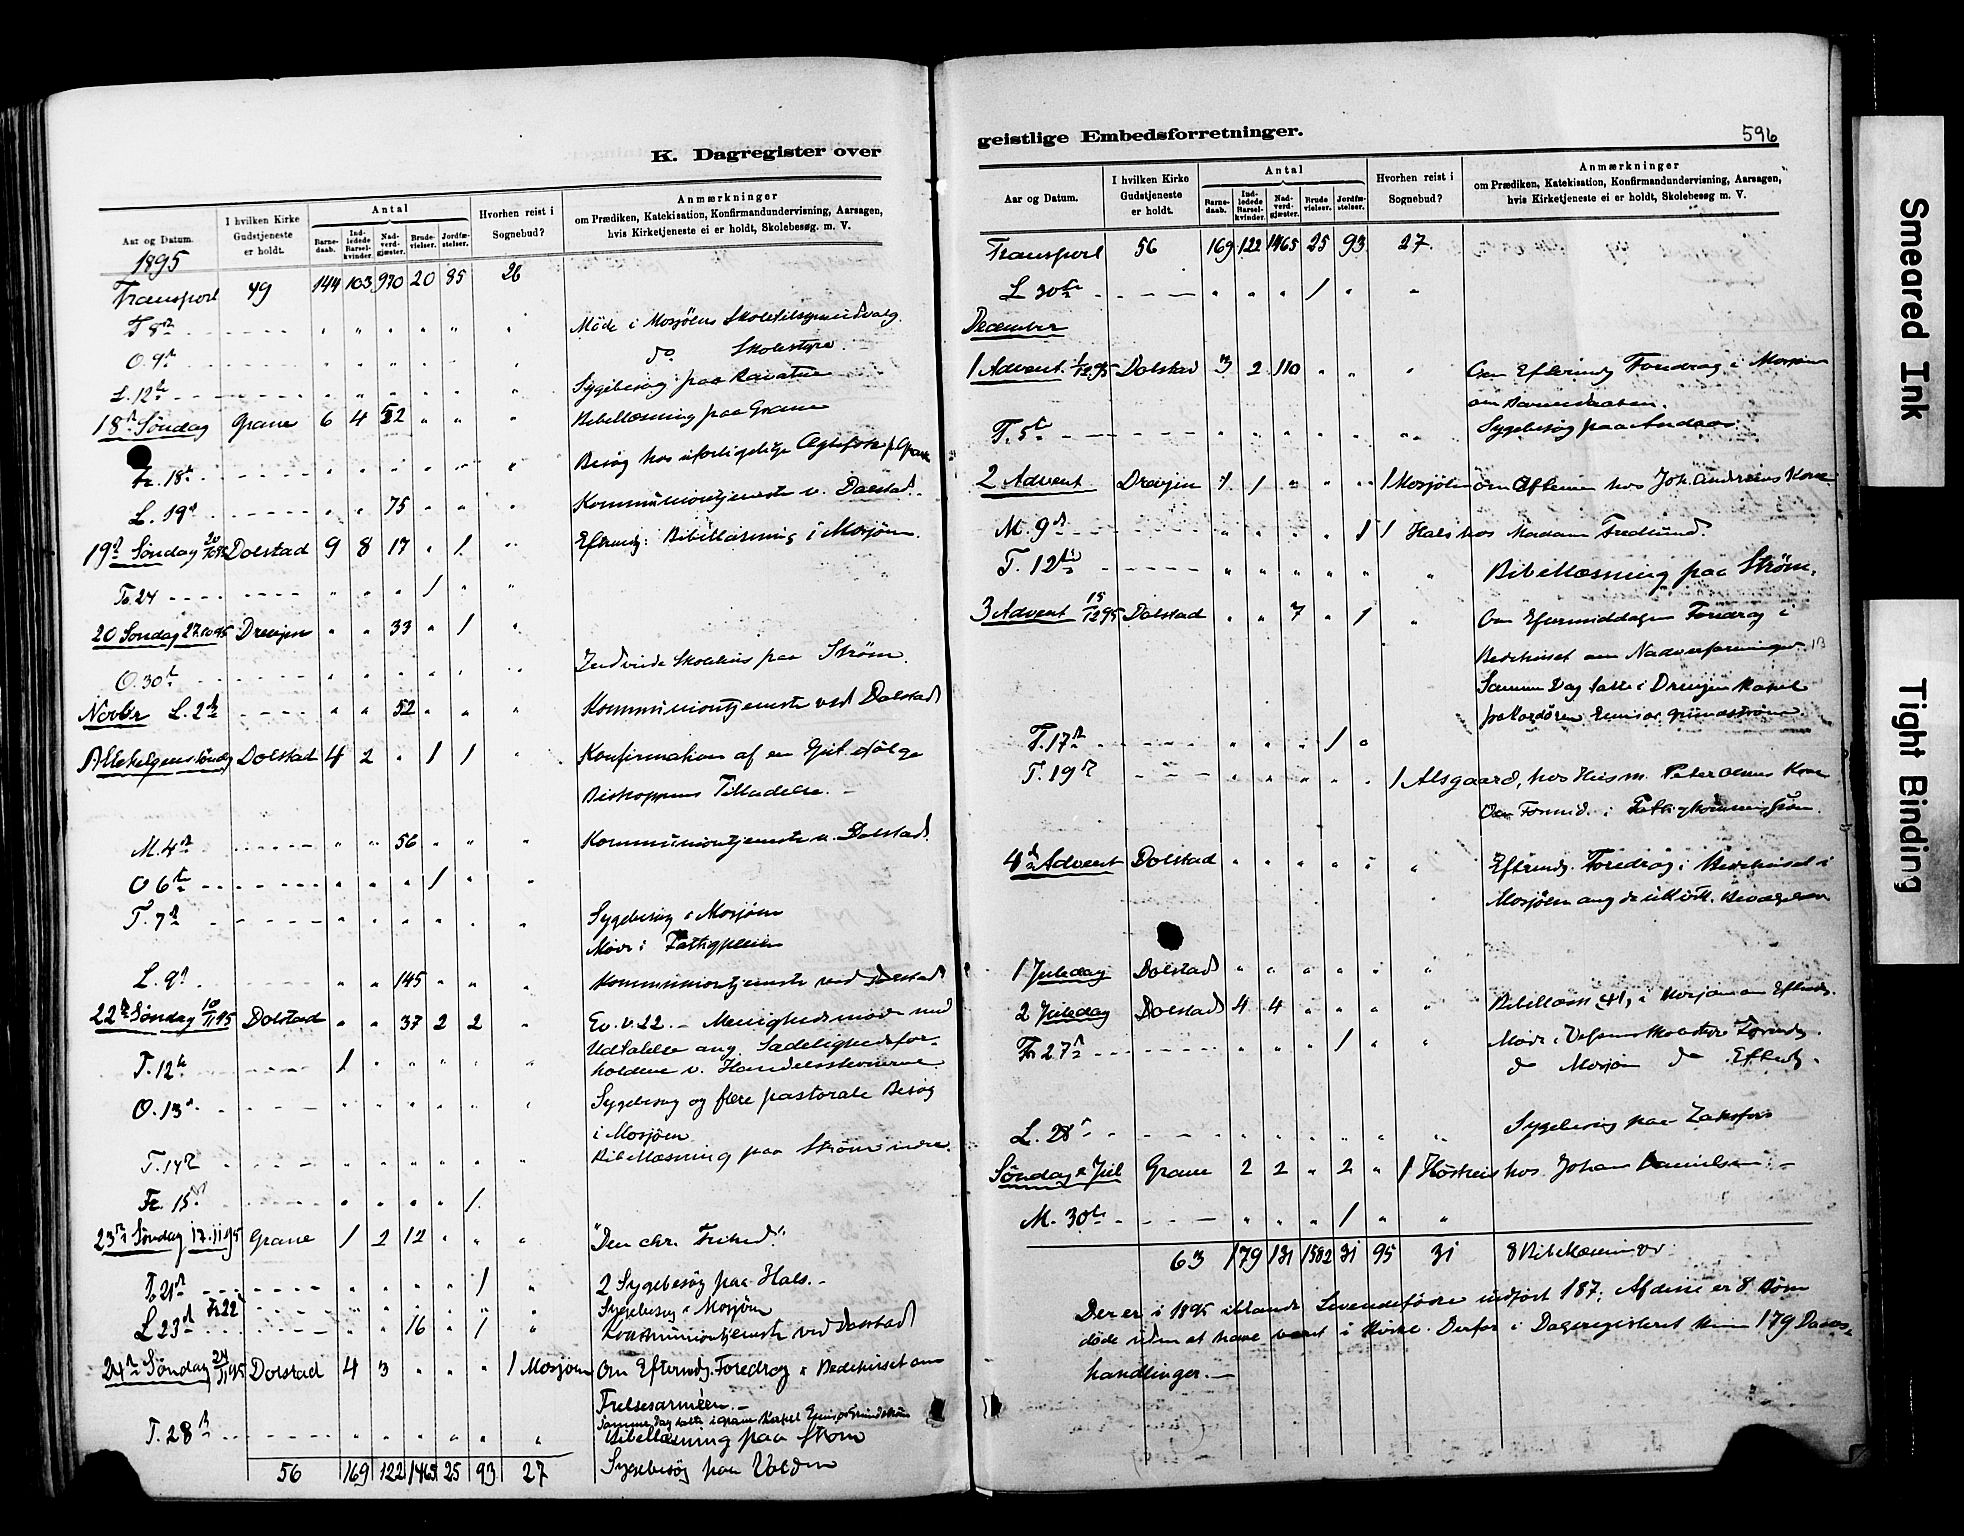 K. Dagregister over
Aar og Datum.
I hvilken Kirke Gudstjeneste er holdt.
Antal
Barnedaab.
Indledede Barselkvinder.
Nadverdgjæster.
Brudevielser.
Jordfæstelser.
Hvorhen reist i Sognebud?
Anmærkninger
om Prædiken, Katekisation, Konfirmandundervisning, Aarsagen,
hvis Kirketjeneste ei er holdt, Skolebesøg. m. V.
1895
Transport 49 144 103 970 20 85 26
T 8de Møde i Mosjøens Skoletilsynsudvalg.
O. 9de do Skolestyre
L. 12te Sygebesøg paa
18de Søndag Grane 6 4 52 Bibellæsning paa Grane
Fr. 18de Besøg hos uforligelige Ægtefolk p. Grane
L. 19de 75 Kommuniontjeneste v. Dolstad.
19de Søndag 20/10 95 Dolstad 9 8 17 1 Eftermd: Bibellæsning i Mosjøen.
To. 24 1
20 Søndag 27.10.95 Drevjen 33 1
O. 30te Indviede Skolehus paa Strøm.
Novbr L. 2den 52 Kommuniontjeneste ved Dolstad
Allehelgenssöndag Dolstad 4 2 1 1 Konfirmation af en Gut ifølge
Biskoppens Tilladelse. –
M. 4de 56 Kommuniontjeneste v. Dolstad.
O 6te 1
T. 7de Sygebesøg i Mosjøen
Møde i Fattigpleien
L. 9de 145 Kommuniontjeneste ved Dolstad
22de Søndag 10/11 95 Dolstad 37 2 2 Ev. v. 22. – Menighedsmøde med
Udtalelse ang. Sædelighedsfor-
holdene v. Handelsstevnerne.
T. 12te 1
O. 13de Sygebesøg og flere pastorale Besøg
i Mosjøen
T. 14de Bibellæsning paa Strøm indre.
Fr. 15de 1
23de Søndag 17.11.95 Grane 1 2 12 "Den chr. Frihed."
T. 21de 1 2 Sygebesøg paa Hals. –
Fr. 22de Sygebesøg i Mosjøen
L 23de 16 1 Kommuniontjeneste ved Dolstad
24de Søndag 24/11 95 Dolstad 4 3 1 Mosjøen Om Eftermdg. Foredrag i Bedehuset om
Frelsesarméen. –
T. 28de Bibellæsning paa Strøm
56 169 122 1465 25 93 27 Sygebesøg paa
geistlige Embedsforretninger.
596
Aar og Datum.
I hvilken Kirke Gudstjeneste er holdt.
Antal
Barnedaab.
Indledede Barselkvinder.
Nadverdgjæster.
Brudevielser.
Jordfæstelser.
Hvorhen reist i Sognebud?
Anmærkninger
om Prædiken, Katekisation, Konfirmandundervisning, Aarsagen,
hvis Kirketjeneste ei er holdt, Skolebesøg m. V.
Transport 56 169 122 1465 25 93 27
L 30te 1
December
1 Advent 1/12 95 Dolstad 3 2 110 Om Eftermdg Foredrag i Mosjøen
om
T. 5te Sygebesøg paa Andaas.
2 Advent Drevjen 1 1 1 Mosjøen om Efterm hos Joh. Andersens Kone
M. 9de 1 1 Hals hos Madam Fredlund.
T. 12te Bibellæsning paa Strøm.
3 Advent 15/12 95 Dolstad 7 1 Om Eftermiddagen Foredrag i
Bedehuset om
Samme Dag talte i Drevjen Kapel
T. 17de 1
T. 19de 1 Alsgaard, hos Husm. Peter Olsens Kone
Om Formid. i Fattigkommission.
4de Advent Dolstad Eftermdg. Foredrag i Bedehuset i
Mosjøen ang de
1 Juledag Dolstad
2 Juledag Dolstad 4 4 i Mosjøen om Eftmdg.
Fr 27de 1 Møde i Vefsens Skolestyre Formdg.
do Mosjøen do Eftmdg.
L. 28de Sygebesøg paa
Søndag e Jul Grane 2 2 2 1 hos Johan Danielsen. –
M. 30te 1
63 179 131 1582 31 95 31 8 Bibellæsninger.
Der er i 1895 iblandt Levendefødte indført 187; Af disse er 8 Børn
døde uden at have været i Kirke. Derfor i Dagregisteret kun 179 Daabs-
handlinger. –
Smeared Ink
Tight Binding